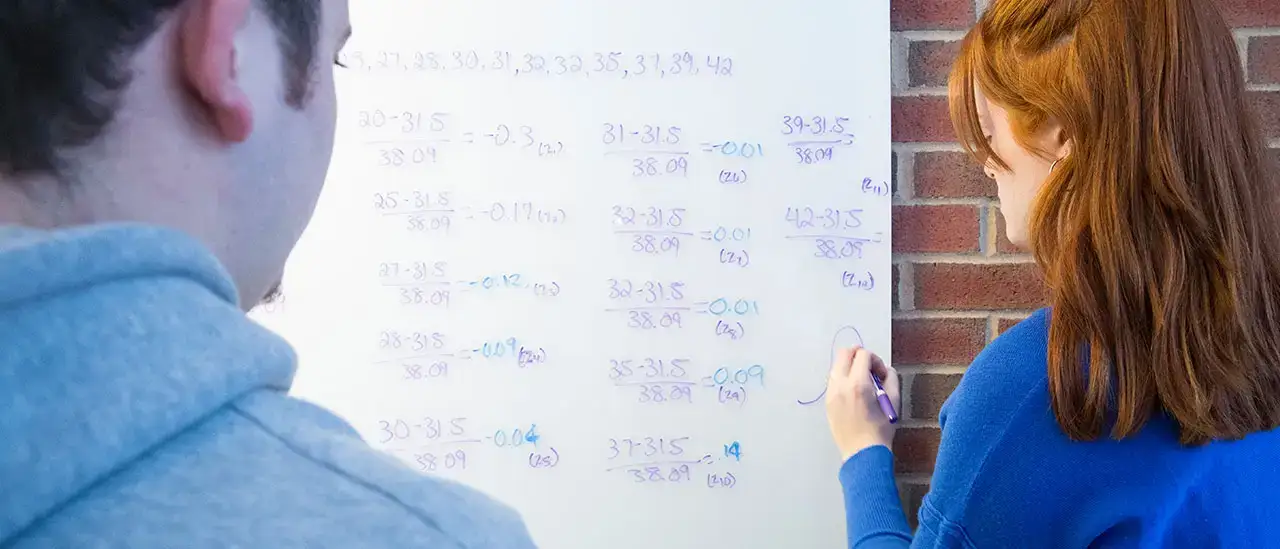 27, 28, 30, 31, 32, 32, 35, 37, 39, 42
20-31.5 / 38.09 = -0.3 (z₁)
25-31.5 / 38.09 = -0.17
27-31.5 / 38.09 = -0.12
28-31.5 / 38.09 = -0.09 (z₄)
30-31.5 / 38.09 -0.04 (z₅)
31-31.5 / 38.09 = -0.01 (z₆)
32-31.5 / 38.09 = 0.01 (z₇)
32-31.5 / 38.09 = 0.01 (z₈)
35-31.5 / 38.09 = 0.09 (z₉)
37-31.5 / 38.09 = .14 (z₁₀)
39-31.5 / 38.09 = (z₁₁)
42-31.5 / 38.09 (z₁₂)